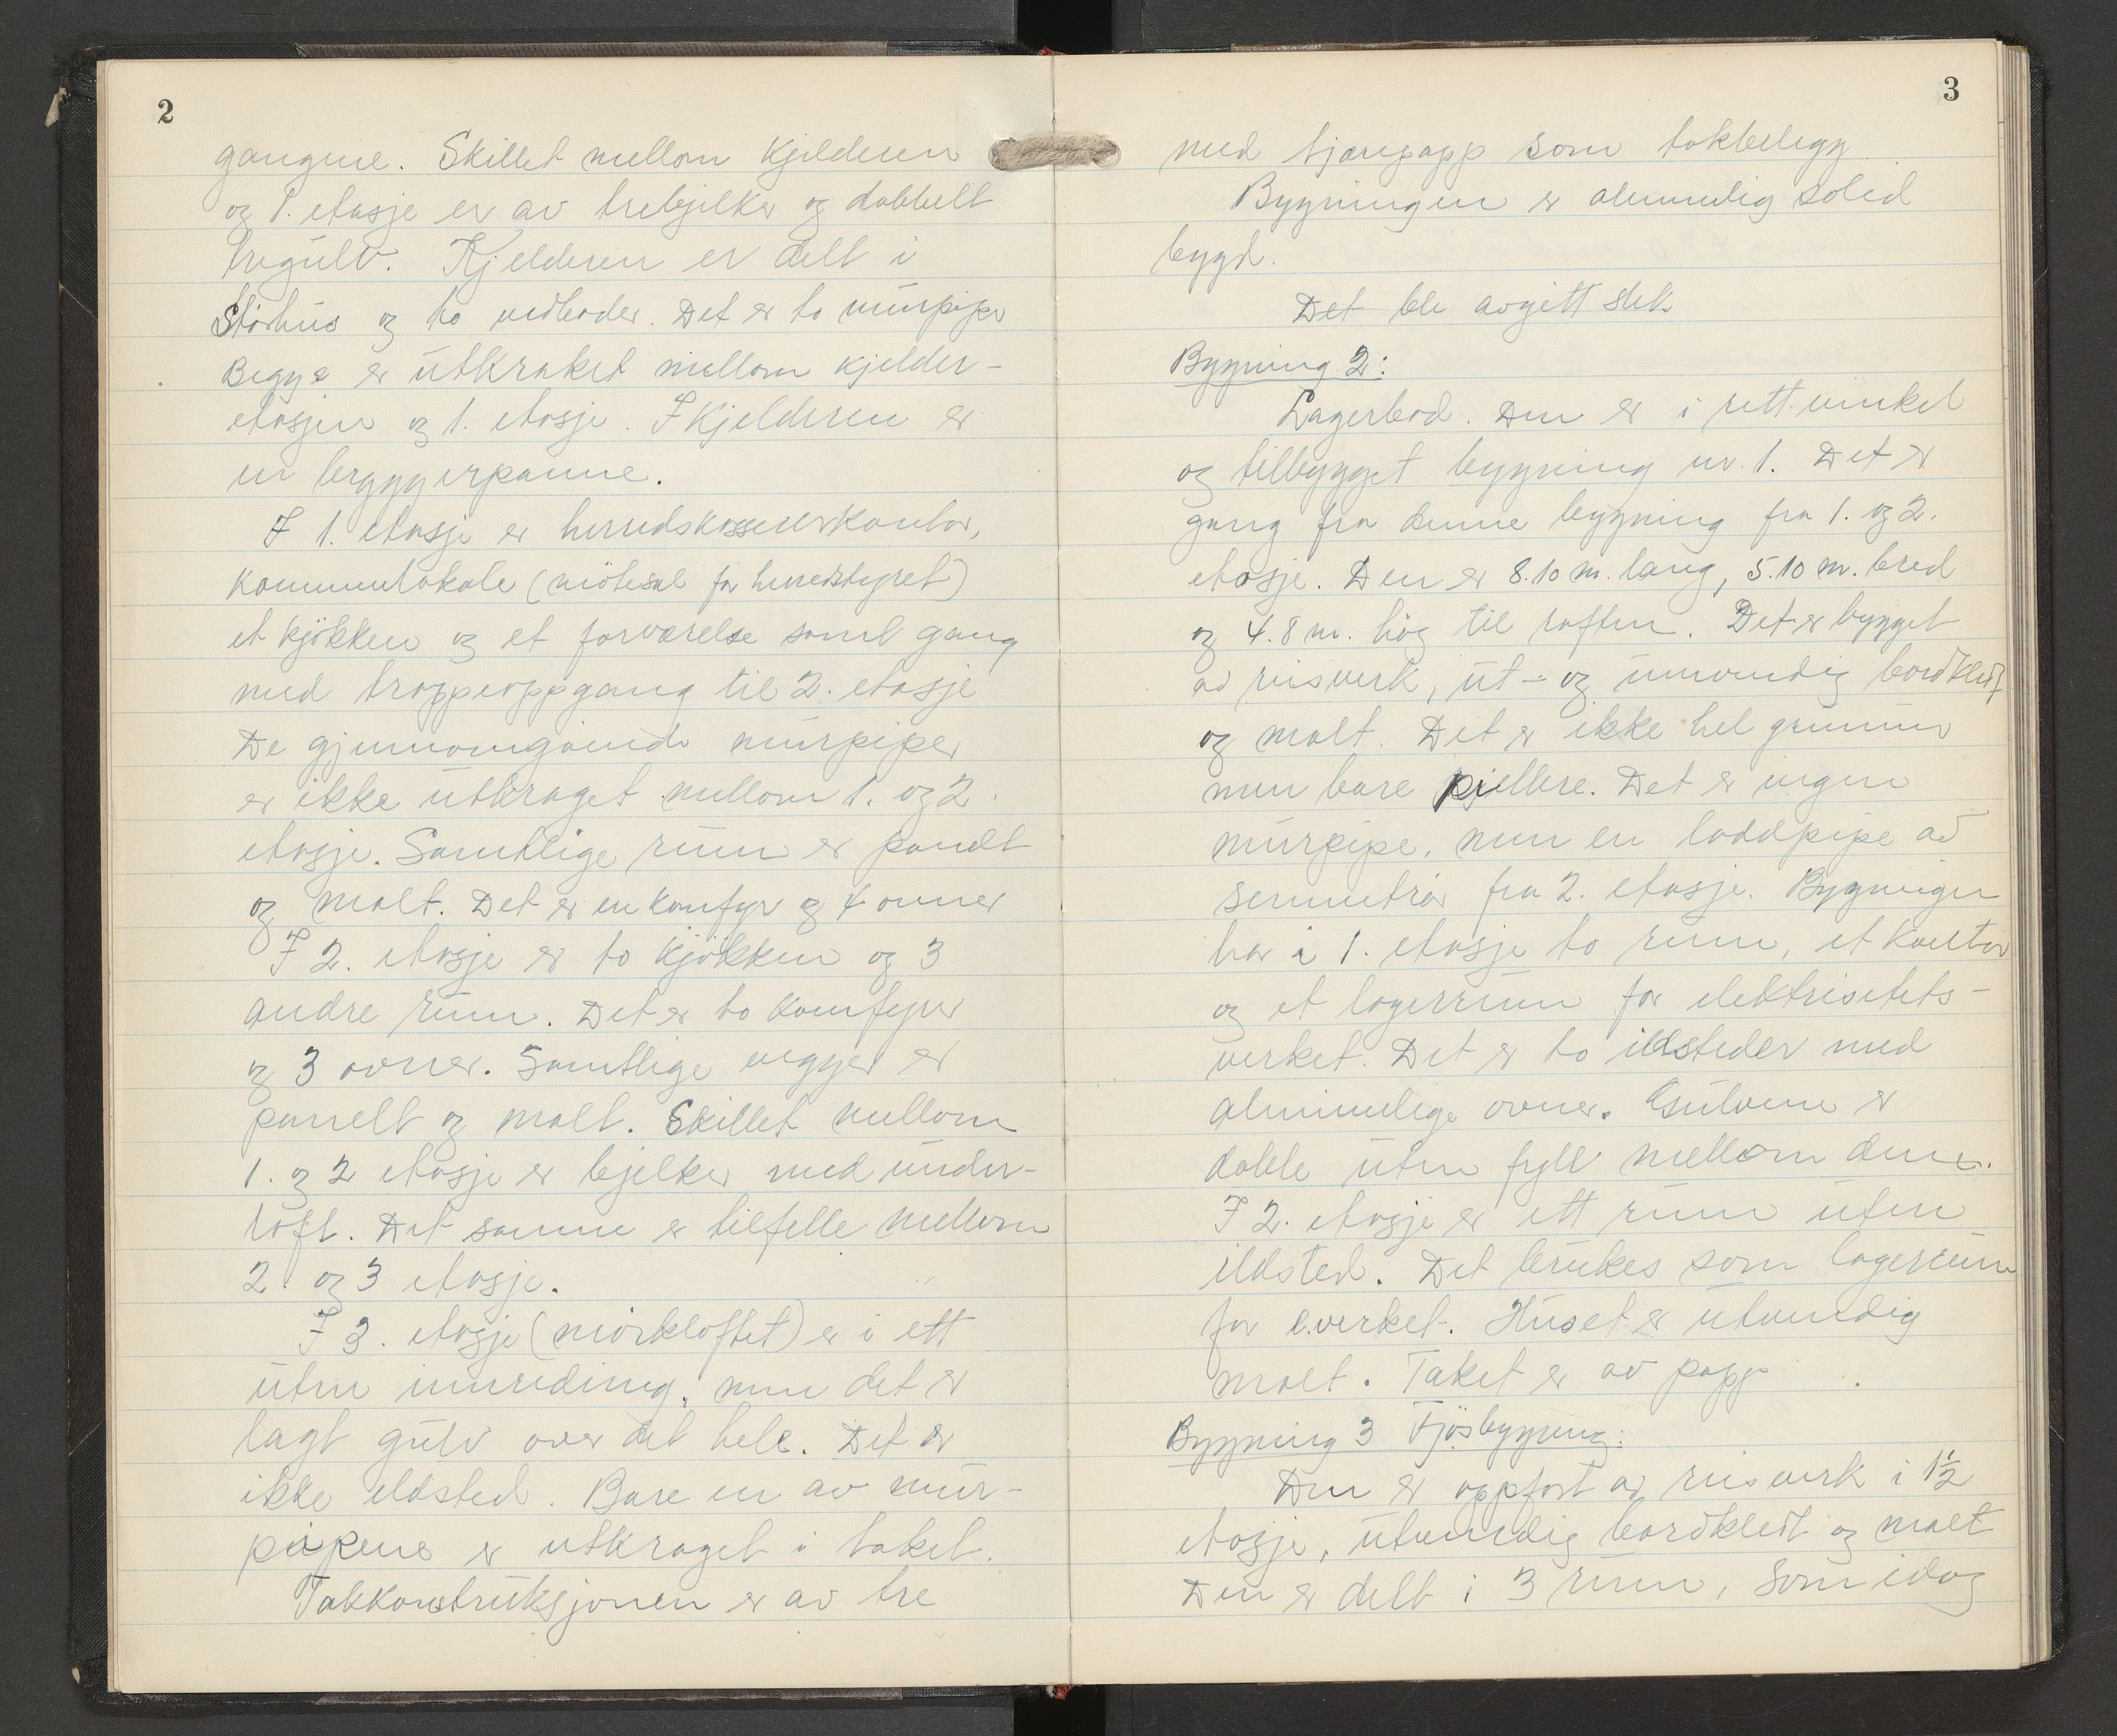 2
gangene. Skillet mellom kjelderen
og 1. etasje er av trebjelker og dobbelt
tregulv. Kjelderen er delt i
Störhus og to vedboder. Det er to murpiper
Begge er utkraket mellom kjelder-
etasjen og 1. etasje. I Kjelderen er
en bryggerpanne.
I 1. etasje er herredskassererkontor,
kommunelokale (mötesal for herredstyret)
et kjökken og et forværelse samt gang
med trappeoppgang til 2. etasje
De gjennomgående murpiper
er ikke utkraget mellom 1. og 2.
etasje. Samtlige rum er panelt
og malt. Det er en komfyr og 4 ovner
I 2. etasje er to kjökken og 3
andre rum. Det er to komfyrer
og 3 ovner. Samtlige vegger er
panelt og malt. Skillet mellom
1. og 2 etasje er bjelker med under-
loft. Det samme er tilfelle mellom
2. og 3 etasje.
I 3. etasje (mörkloftet) er i ett
uten innredning, men det er
lagt gulv over det hele. Det er
ikke ildsted. Bare en av mur-
pipene er utkraget i taket.
Takkonstruksjonen er av tre
3
med tjærepapp som takbelegg
Bygningen er almindelig solid
bygd.
Det ble avgitt slik
Bygning 2:
Lagerbod. Den er i rett vinkel
og tilbygget bygning nr. 1. Det er
gang fra denne bygning fra 1. og 2.
etasje. Den er 8.10 m. lang, 5.10 m. bred
og 4.8 m. hög til raften. Det er bygget
av reisverk, ut- og innvendig bordkledt
og malt. Det er ikke hel grunnmur
men bare pillere. Det er ingen
murpipe, men en loddpipe av
sementrör fra 2. etasje. Bygningen
har i 1. etasje to rum, et kontor
og et lagerrum for elektrisitets-
verket. Det er to ildsteder med
almindelige ovner. Gulvene er
doble uten fyll mellem dem.
I 2. etasje er ett rum uten
ildsted. Det brukes som lagerrum
for e.verket. Huset er utvendig
malt. Taket er av papp
Bygning 3 Fjösbygning:
Den er oppfört av reisverk i 1½
etasje, utvendig bordkledt og malt
Den er delt i 3 rum, som idag